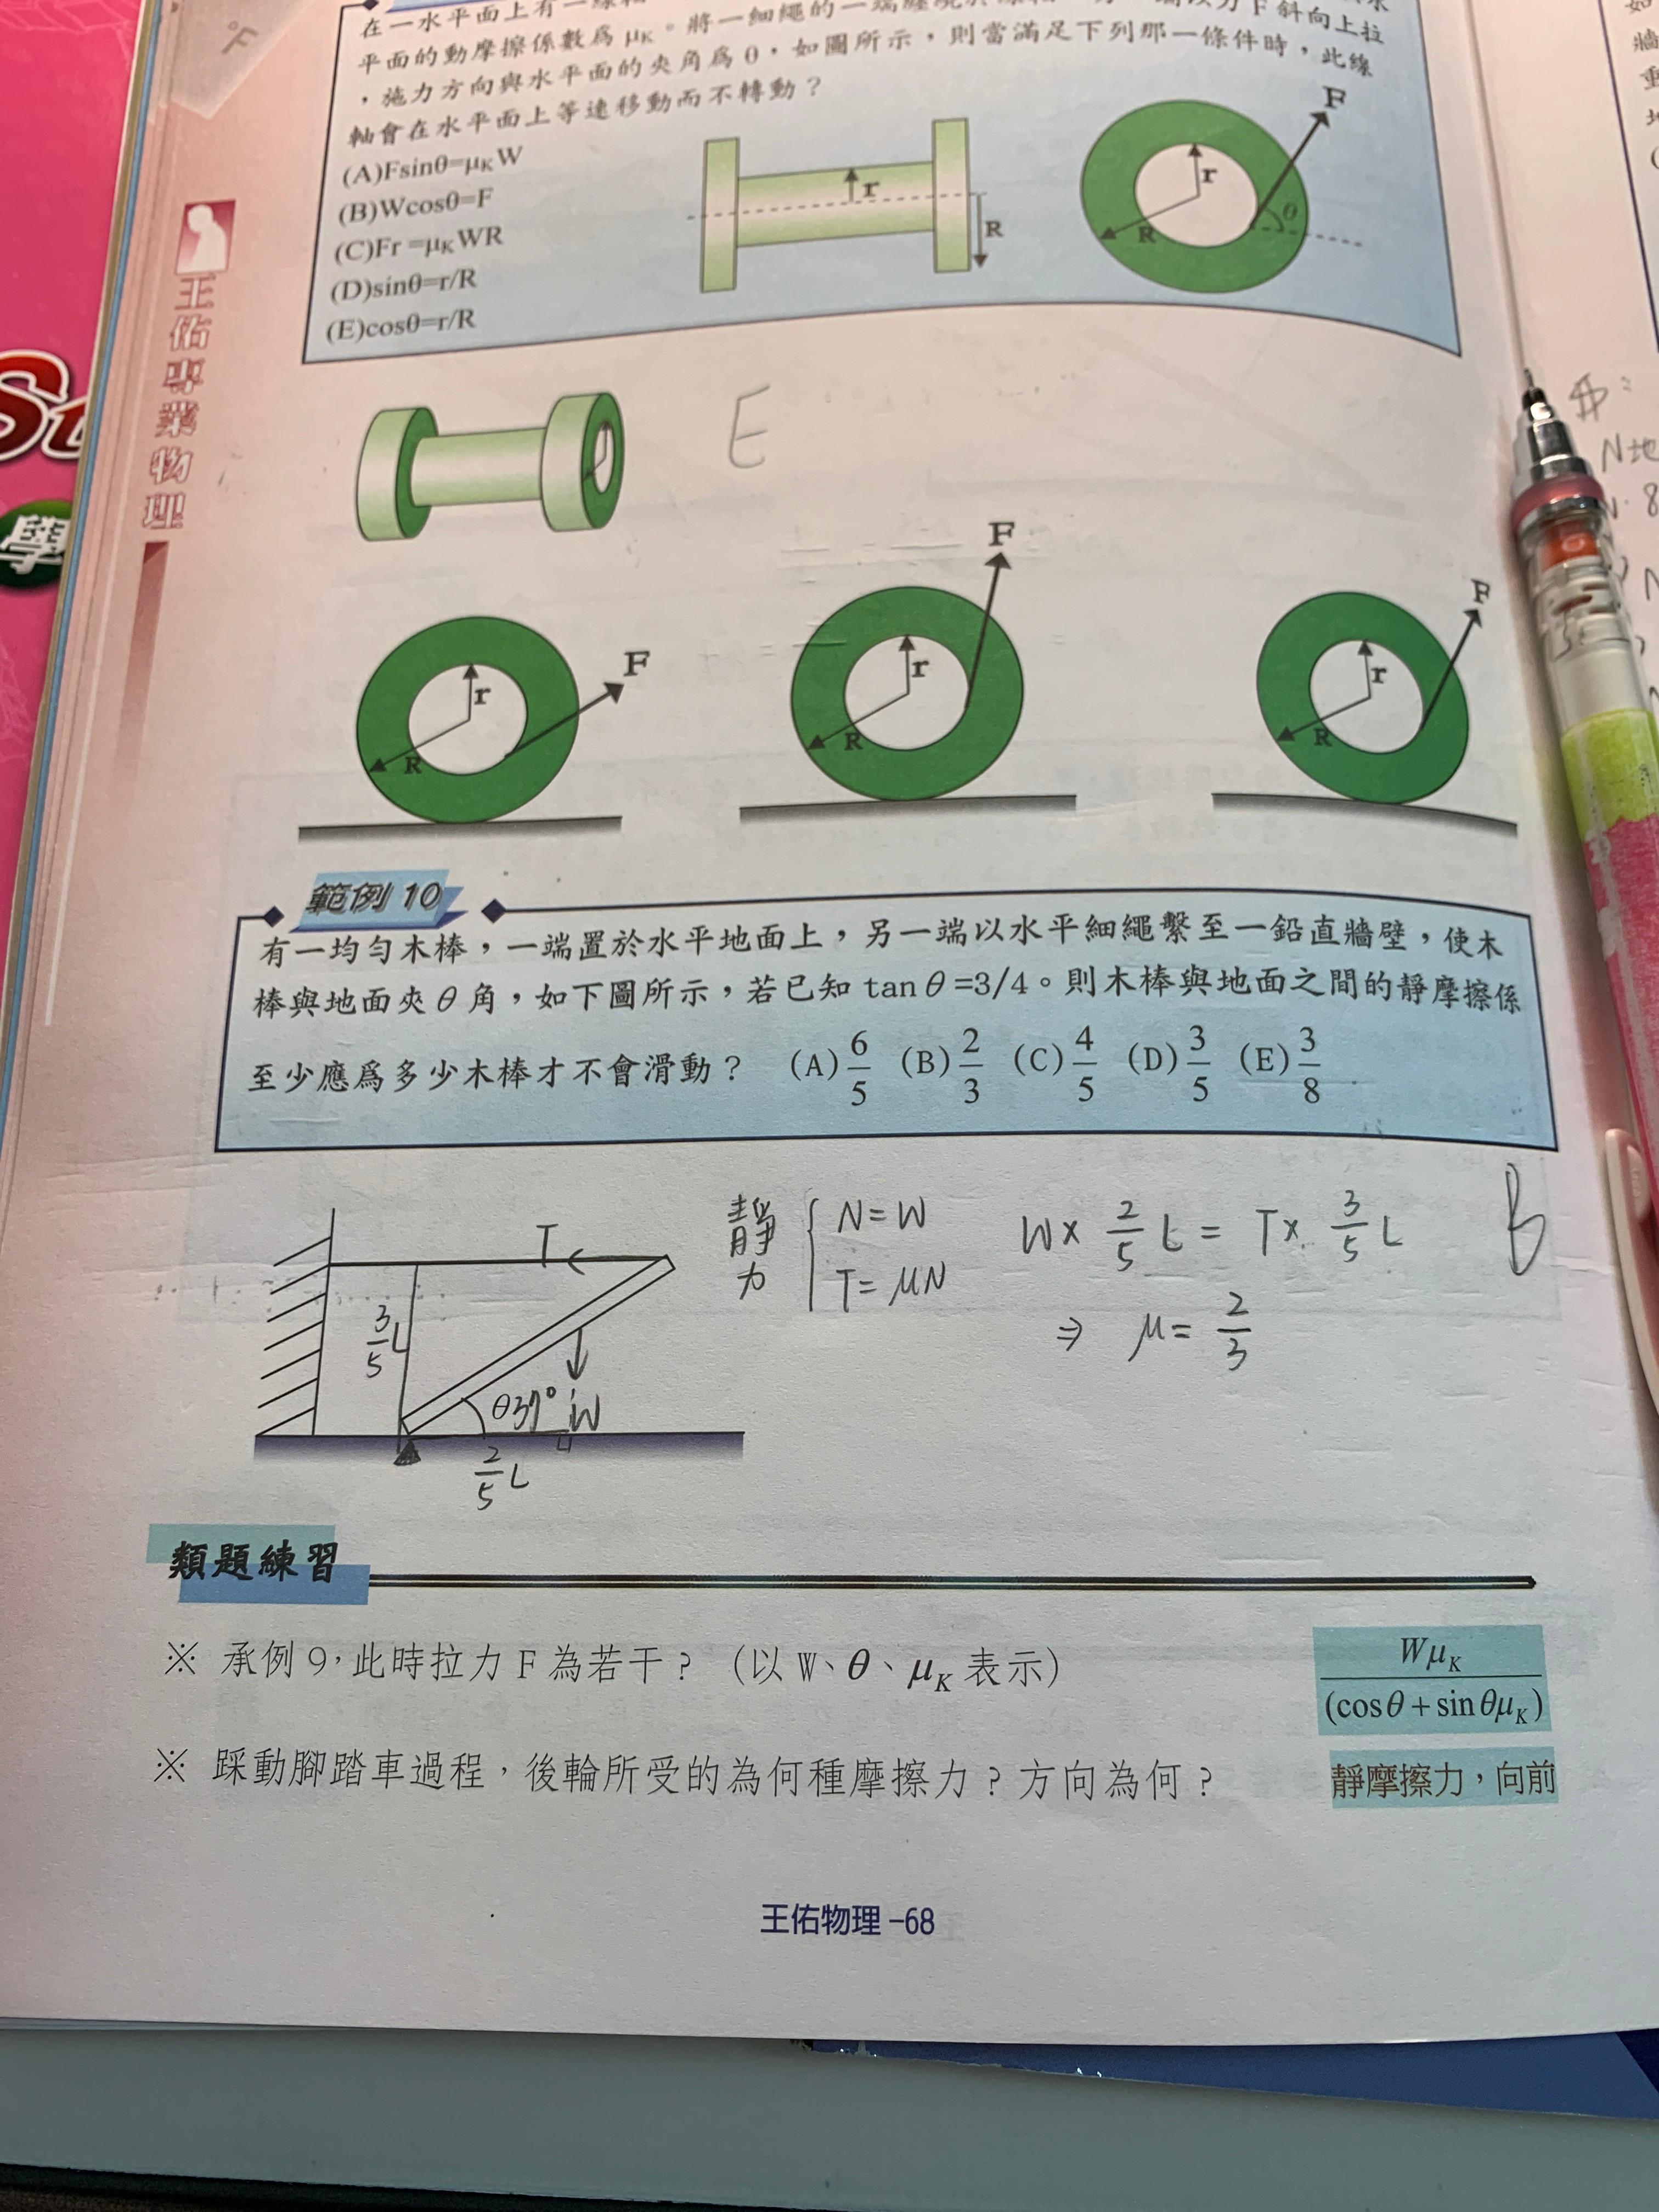 °F
在一水平面上有一線軸
F 斜向上拉
平面的動摩擦係數爲 μK。將一細繩的一端纏繞於
，施力方向與水平面的夾角爲 θ，如圖所示，則當滿足下列那一條件時，此線
軸會在水平面上等速移動而不轉動？
(A)Fsinθ=μK W
(B)Wcosθ=F
(C)Fr =μK WR
(D)sinθ=r/R
(E)cosθ=r/R
r
R
F
r
R
θ
王佑專業物理
St
學
E
F
r
R
F
r
R
F
r
R
範例 10
有一均勻木棒，一端置於水平地面上，另一端以水平細繩繫至一鉛直牆壁，使木
棒與地面夾 θ 角，如下圖所示，若已知 tan θ =3/4。則木棒與地面之間的靜摩擦係
至少應爲多少木棒才不會滑動？ (A) 6/5 (B) 2/3 (C) 4/5 (D) 3/5 (E) 3/8
T
3/5 L
θ37°
W
2/5 L
靜力
N=W
T=μN
W× 2/5 L = T× 3/5 L
⇒ μ= 2/3
B
類題練習
※ 承例 9，此時拉力 F 為若干？（以 W、θ、μK 表示）
WμK / (cosθ + sinθμK)
※ 踩動腳踏車過程，後輪所受的為何種摩擦力？方向為何？
靜摩擦力，向前
王佑物理 –68
N地